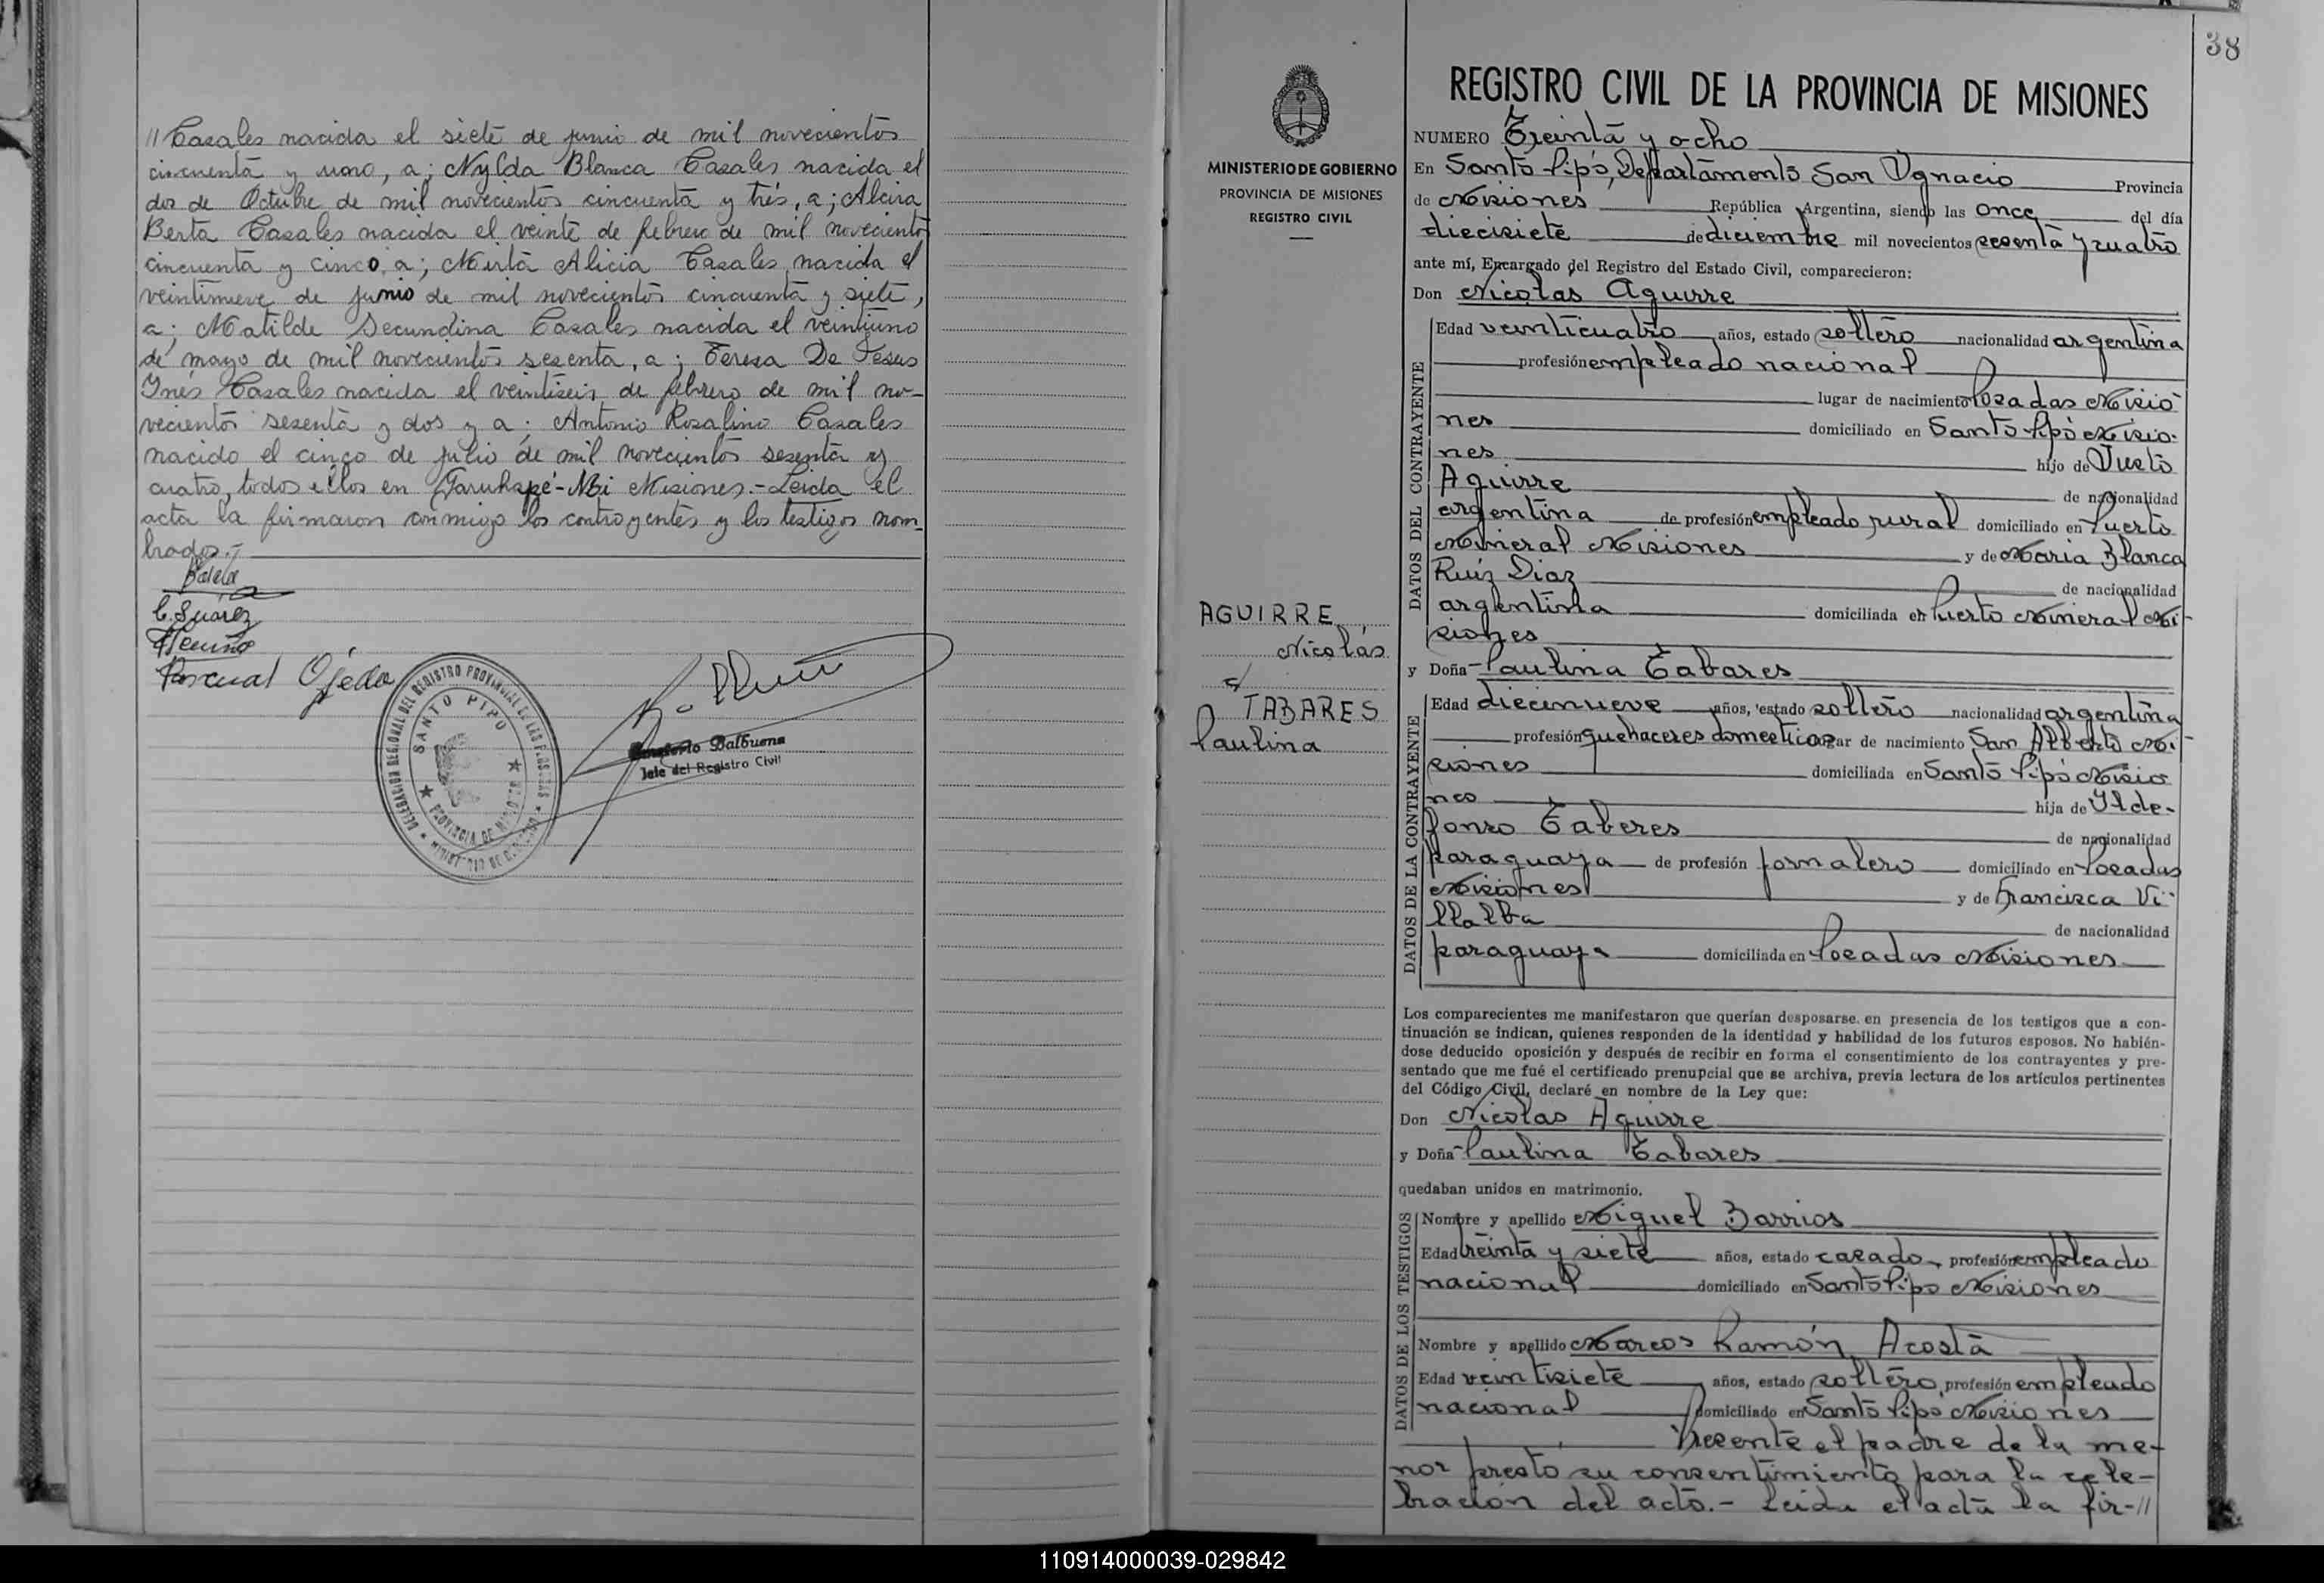 // Casales nacida el siete de junio de mil novecientos
cincuenta y uno, a; Nylda Blanca Casales nacida el
dos de Octubre de mil novecientos cincuenta y trés, a; Alcira
Berta Casales nacida el veinte de febrero de mil novecientos
cincuenta y cinco, a; Mirta Alicia Casales nacida el
veintinueve de junio de mil novecientos cincuenta y siete,
a; Matilde Secundina Casales nacida el veintiuno
de mayo de mil novecientos sesenta, a; Teresa De Jesus
Ynés Casales nacida el veintiseis de febrero de mil no-
vecientos sesenta y dos y a; Antonio Rosalino Casales
nacido el cinco de julio de mil novecientos sesenta y
cuatro, todos ellos en Garuhapé-Mi Misiones.- Leida el
acta la firmaron conmigo los contrayentes y los testigos nom-
brados.-
C. Suárez
Pascual Ojeda
DELEGACION REGIONAL DEL REGISTRO PROVINCIAL DE LAS PERSONAS
SANTO PIPO
PROVINCIA DE MISIONES
MINISTERIO DE GOBIERNO
Balbuena
Jefe del Registro Civil
38
MINISTERIO DE GOBIERNO
PROVINCIA DE MISIONES
REGISTRO CIVIL
AGUIRRE
Nicolás
y
TABARES
Paulina
REGISTRO CIVIL DE LA PROVINCIA DE MISIONES
NUMERO Treinta y ocho
En Santo Pipó, Departamento San Ygnacio Provincia
de Misiones República Argentina, siendo las once del día
diecisiete de diciembre mil novecientos sesenta y cuatro
ante mí, Encargado del Registro del Estado Civil, comparecieron:
Don Nicolás Aguirre
DATOS DEL CONTRAYENTE
Edad veinticuatro años, estado soltero nacionalidad argentina
profesión empleado nacional
lugar de nacimiento Posadas Misio
nes domiciliado en Santo Pipó Misio-
nes hijo de Justo
Aguirre de nacionalidad
argentina de profesión empleado rural domiciliado en Puerto
Mineral Misiones y de Maria Blanca
Ruiz Diaz de nacionalidad
argentina domiciliada en Puerto Mineral Mi-
siones
y Doña Paulina Tabares
DATOS DE LA CONTRAYENTE
Edad diecinueve años, estado soltero nacionalidad argentina
profesión quehaceres domesticos lugar de nacimiento San Alberto Mi-
siones domiciliada en Santo Pipó Misio
nes hija de Ylde-
fonso Taberes de nacionalidad
paraguaya de profesión jornalero domiciliado en Posadas
Misiones y de Francisca Vi-
llalba de nacionalidad
paraguaya domiciliada en Posadas Misiones
Los comparecientes me manifestaron que querían desposarse, en presencia de los testigos que a con-
tinuación se indican, quienes responden de la identidad y habilidad de los futuros esposos. No habién-
dose deducido oposición y después de recibir en forma el consentimiento de los contrayentes y pre-
sentado que me fué el certificado prenupcial que se archiva, previa lectura de los artículos pertinentes
del Código Civil, declaré en nombre de la Ley que:
Don Nicolas Aguirre
y Doña Paulina Tabares
quedaban unidos en matrimonio.
DATOS DE LOS TESTIGOS
Nombre y apellido Miguel Barrios
Edad treinta y siete años, estado casado, profesión empleado
nacional domiciliado en Santo Pipo Misiones
Nombre y apellido Marcos Ramón Acosta
Edad veintisiete años, estado soltero, profesión empleado
nacional domiciliado en Santo Pipó Misiones
Presente el padre de la me-
nor presto su consentimiento para la cele-
bración del acto.- Leida el acta la fir-//
110914000039-029842